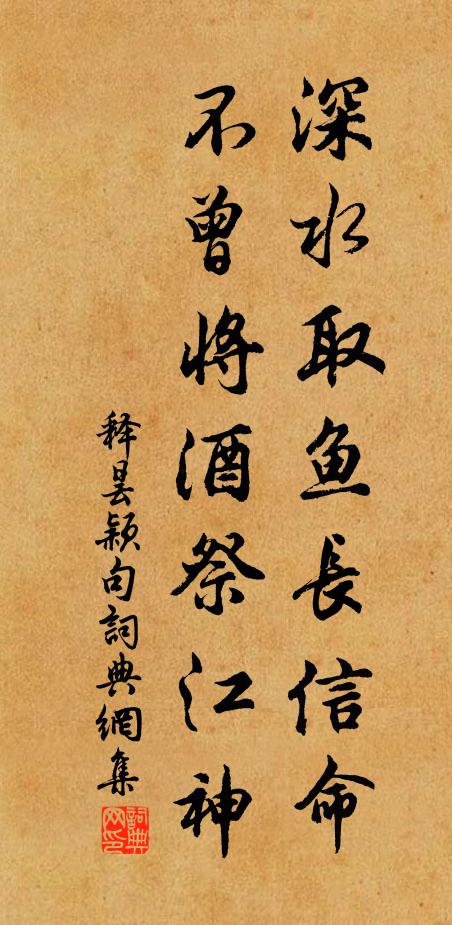 深水取鱼長信命
不曾將酒祭江神
释昙颖句詞典網集
詞典网印